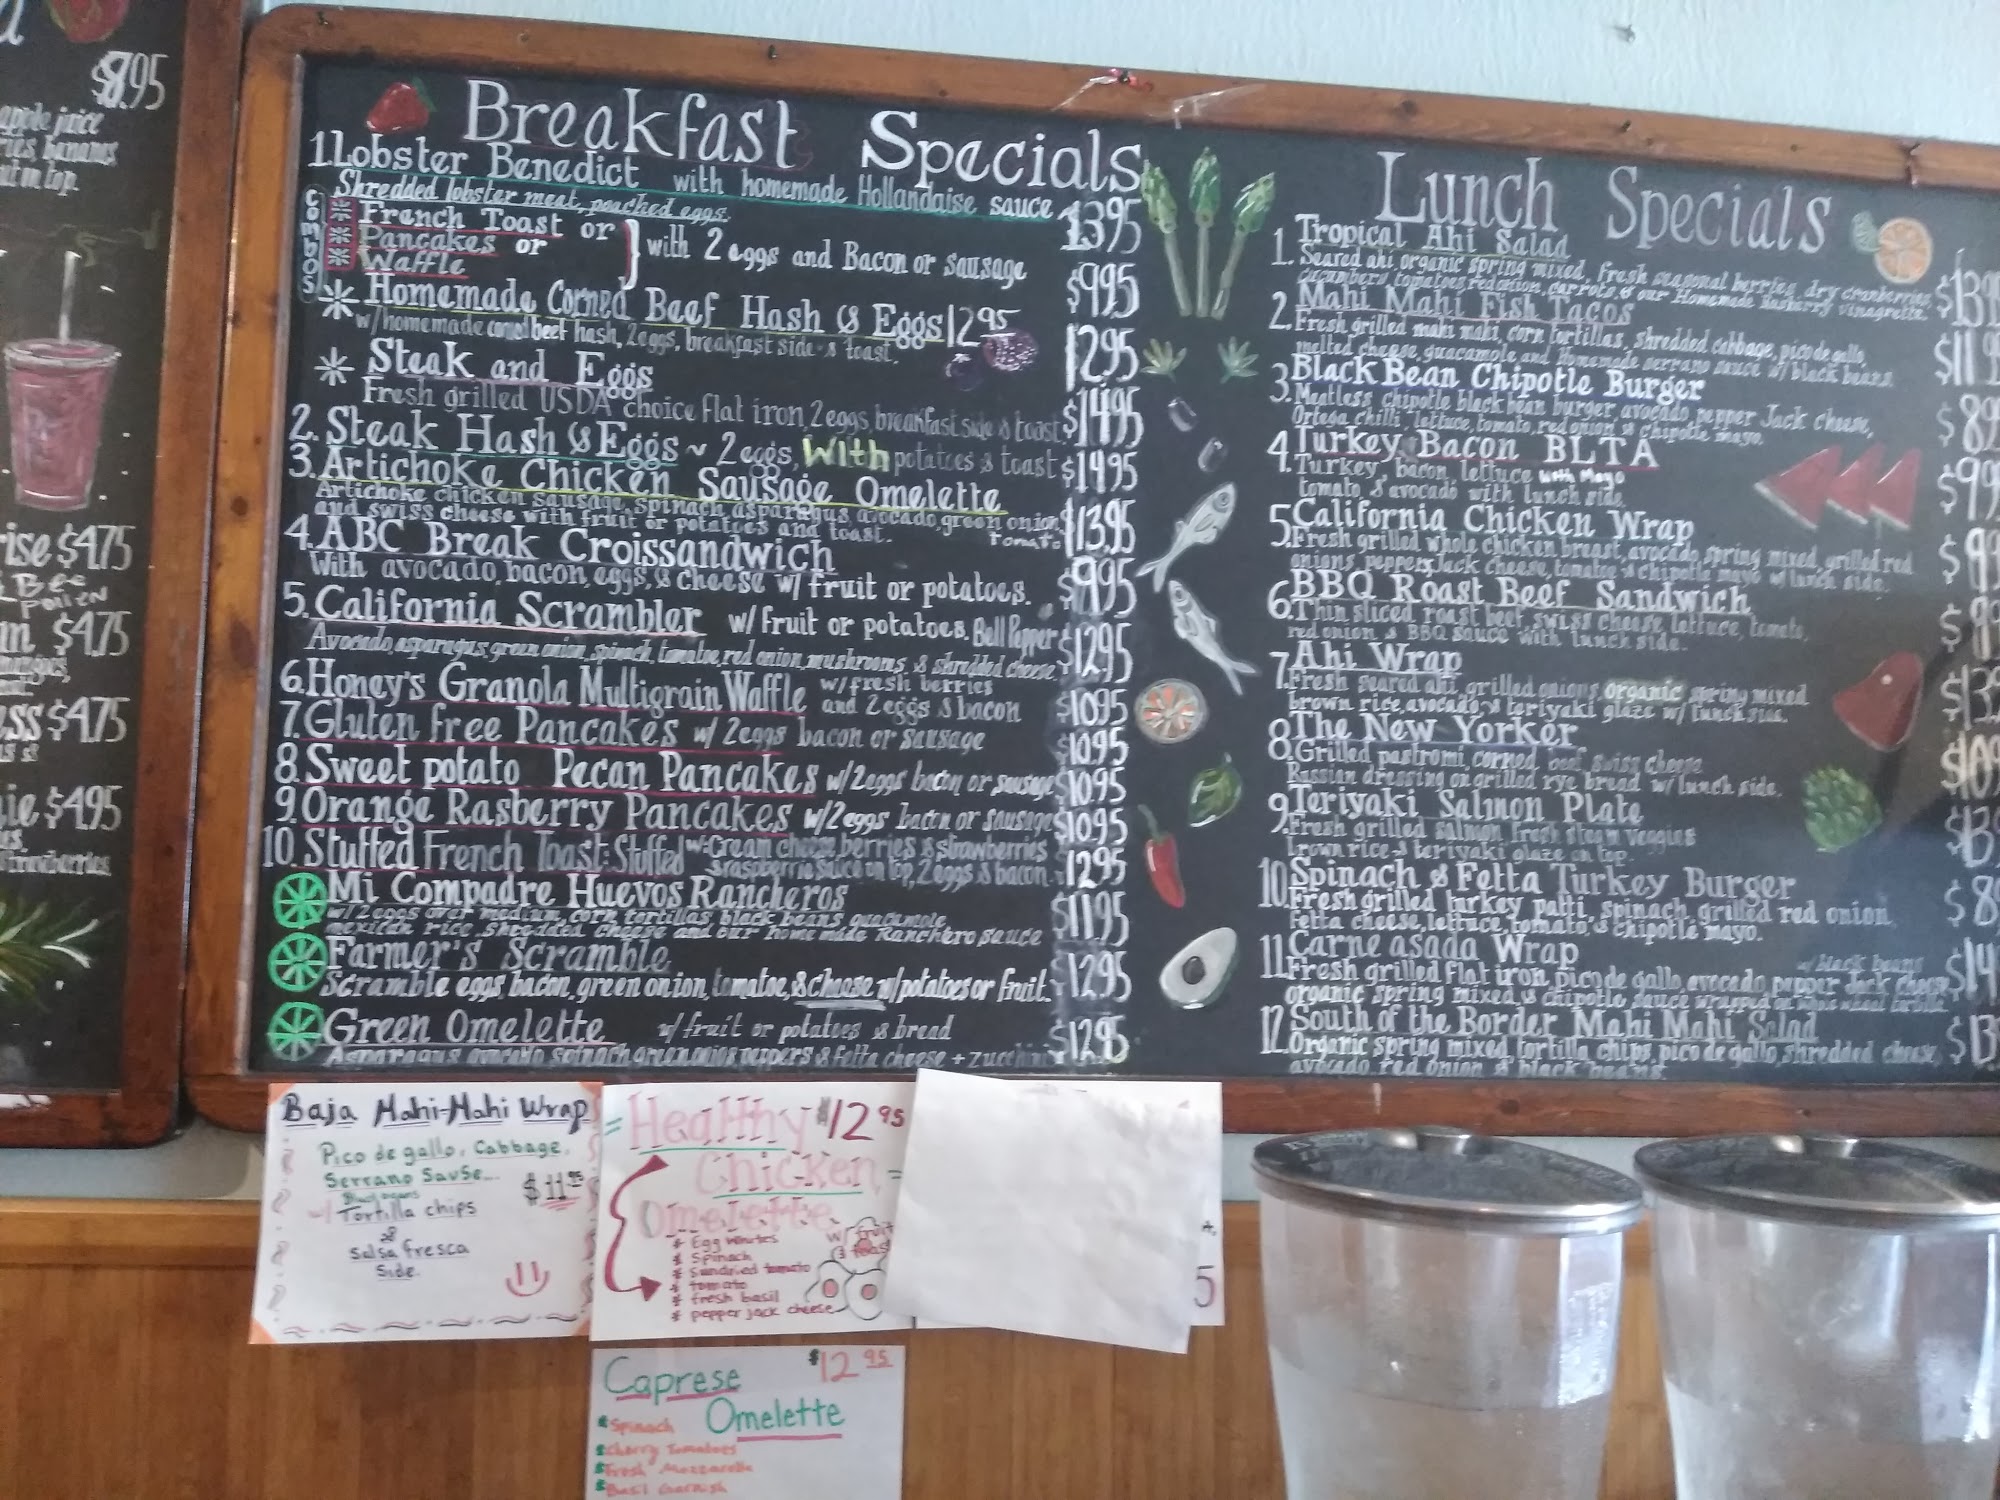 $8.95
apple juice
bananas
on top.
$4.75
Bee
pollen
$4.75
$4.75
$4.95
Strawberries
Breakfast Specials
1. Lobster Benedict with homemade Hollandaise sauce $13.95
Shredded lobster meat, poached eggs.
Combos
French Toast or
Pancakes or
Waffle
with 2 eggs and Bacon or sausage $9.95
Homemade Corned Beef Hash & Eggs 12.95 $12.95
w/homemade corned beef hash, 2 eggs, breakfast side & toast.
Steak and Eggs
Fresh grilled USDA choice flat iron, 2 eggs, breakfast side & toast $14.95
2. Steak Hash & Eggs ~ 2 eggs, With potatoes & toast $14.95
3. Artichoke Chicken Sausage Omelette $13.95
Artichoke chicken sausage, spinach, asparagus, avocado, green onion,
and swiss cheese with fruit or potatoes and toast. tomato
4. ABC Break Croissandwich
With avocado, bacon, eggs, & cheese w/ fruit or potatoes. $9.95
5. California Scrambler w/fruit or potatoes. Bell Pepper $12.95
Avocado, asparagus, green onion, spinach, tomatoe, red onion, mushrooms, & shredded cheese
6. Honey's Granola Multigrain Waffle w/fresh berries and 2 eggs & bacon $10.95
7. Gluten free Pancakes w/ 2 eggs bacon or sausage $10.95
8. Sweet potato Pecan Pancakes w/2 eggs bacon or sausage $10.95
9. Orange Rasberry Pancakes w/2 eggs bacon or sausage $10.95
10. Stuffed French Toast: Stuffed w/ Cream cheese, berries & strawberries $12.95
raspberrie sauce on top, 2 eggs & bacon.
Mi Compadre Huevos Rancheros $11.95
w/ 2 eggs over medium, corn tortillas, black beans, guacamole,
mexican rice, shredded cheese and our home made Ranchero sauce
Farmer's Scramble $12.95
Scramble eggs, bacon, green onion, tomatoe, & cheese w/potatoes or fruit.
Green Omelette w/fruit or potatoes & bread $12.95
Asparagus, avocado, spinach, green onion, peppers & fetta cheese + zucchini
Lunch Specials
1. Tropical Ahi Salad
Seared ahi, organic spring mixed, fresh seasonal berries, dry cranberries,
cucumbers, tomatoes, red onion, carrots, & our Homemade Rasberry vinagrette.
2. Mahi Mahi Fish Tacos
Fresh grilled mahi mahi, corn tortillas, shredded cabbage, pico de gallo,
melted cheese, guacamole and Homemade serrano sauce w/ black beans.
3. Black Bean Chipotle Burger
Meatless chipotle black bean burger, avocado, pepper Jack cheese,
Ortega chilli, lettuce, tomato, red onion & chipotle mayo.
4. Turkey Bacon BLTA
Turkey, bacon, lettuce with Mayo
tomato, & avocado with lunch side.
5. California Chicken Wrap
Fresh grilled whole chicken breast, avocado, spring mixed, grilled red
onions, pepper Jack cheese, tomatoe & chipotle mayo w/ lunch side.
6. BBQ Roast Beef Sandwich
Thin sliced roast beef, swiss cheese, lettuce, tomato,
red onion & BBQ sauce with lunch side.
7. Ahi Wrap
Fresh seared ahi, grilled onions, organic spring mixed
brown rice, avocado, & teriyaki glaze w/ lunch side.
8. The New Yorker
Grilled pastromi, corned beef, swiss cheese
Russian dressing on grilled rye bread w/ lunch side.
9. Teriyaki Salmon Plate
Fresh grilled salmon, fresh steam veggies
brown rice & teriyaki glaze on top.
10. Spinach & Fetta Turkey Burger
Fresh grilled turkey patti, spinach, grilled red onion,
fetta cheese, lettuce, tomato, & chipotle mayo.
11. Carne asada Wrap w/ black beans
Fresh grilled flat iron, pico de gallo, avocado, pepper Jack cheese
organic spring mixed, & chipotle sauce wrapped
12. South of the Border Mahi Mahi Salad
Organic spring mixed, tortilla chips, pico de gallo, shredded cheese,
avocado, red onion & black beans.
Baja Mahi-Mahi Wrap
Pico de gallo, Cabbage,
Serrano Sause...
$11.95
w/ Tortilla chips
&
Salsa fresca
Side.
Healthy $12.95
Chicken
Omelette
Egg whites
Spinach
Sundried tomato
tomato
fresh basil
pepper jack cheese
w/ fruit
& toast
5
Caprese $12.95
Omelette
Spinach
Cherry Tomatoes
Fresh Mozzarella
Basil Garnish